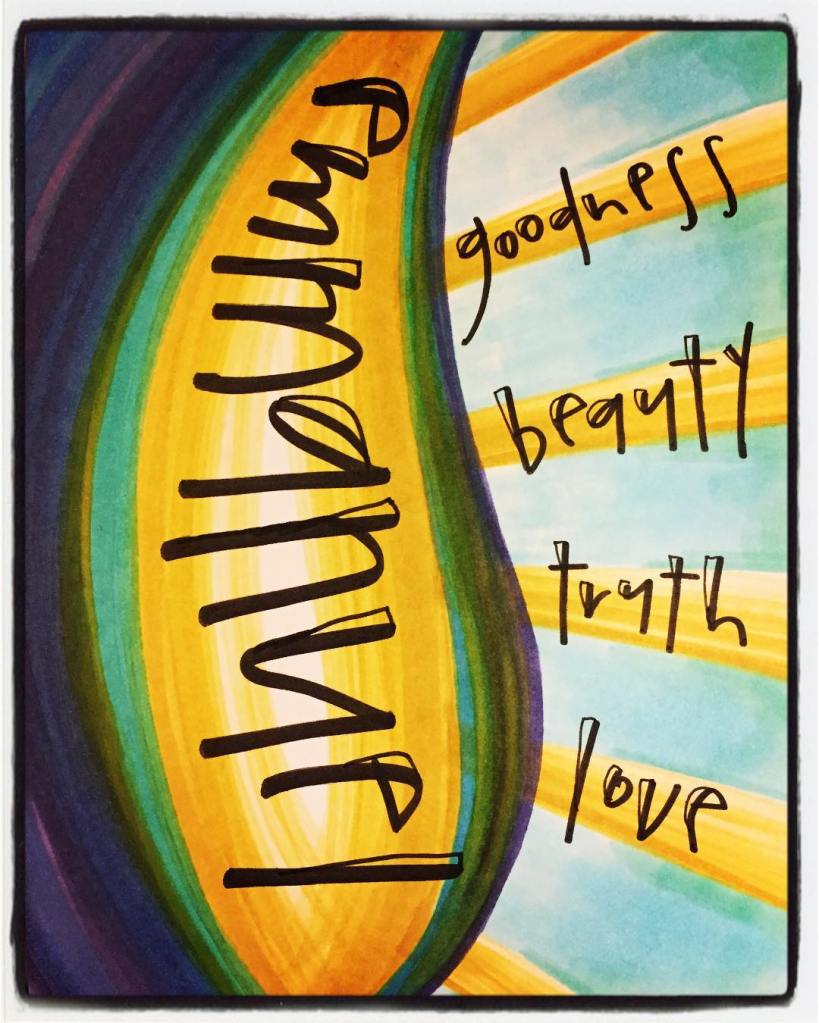 emmanuel
goodness
beauty
truth
love